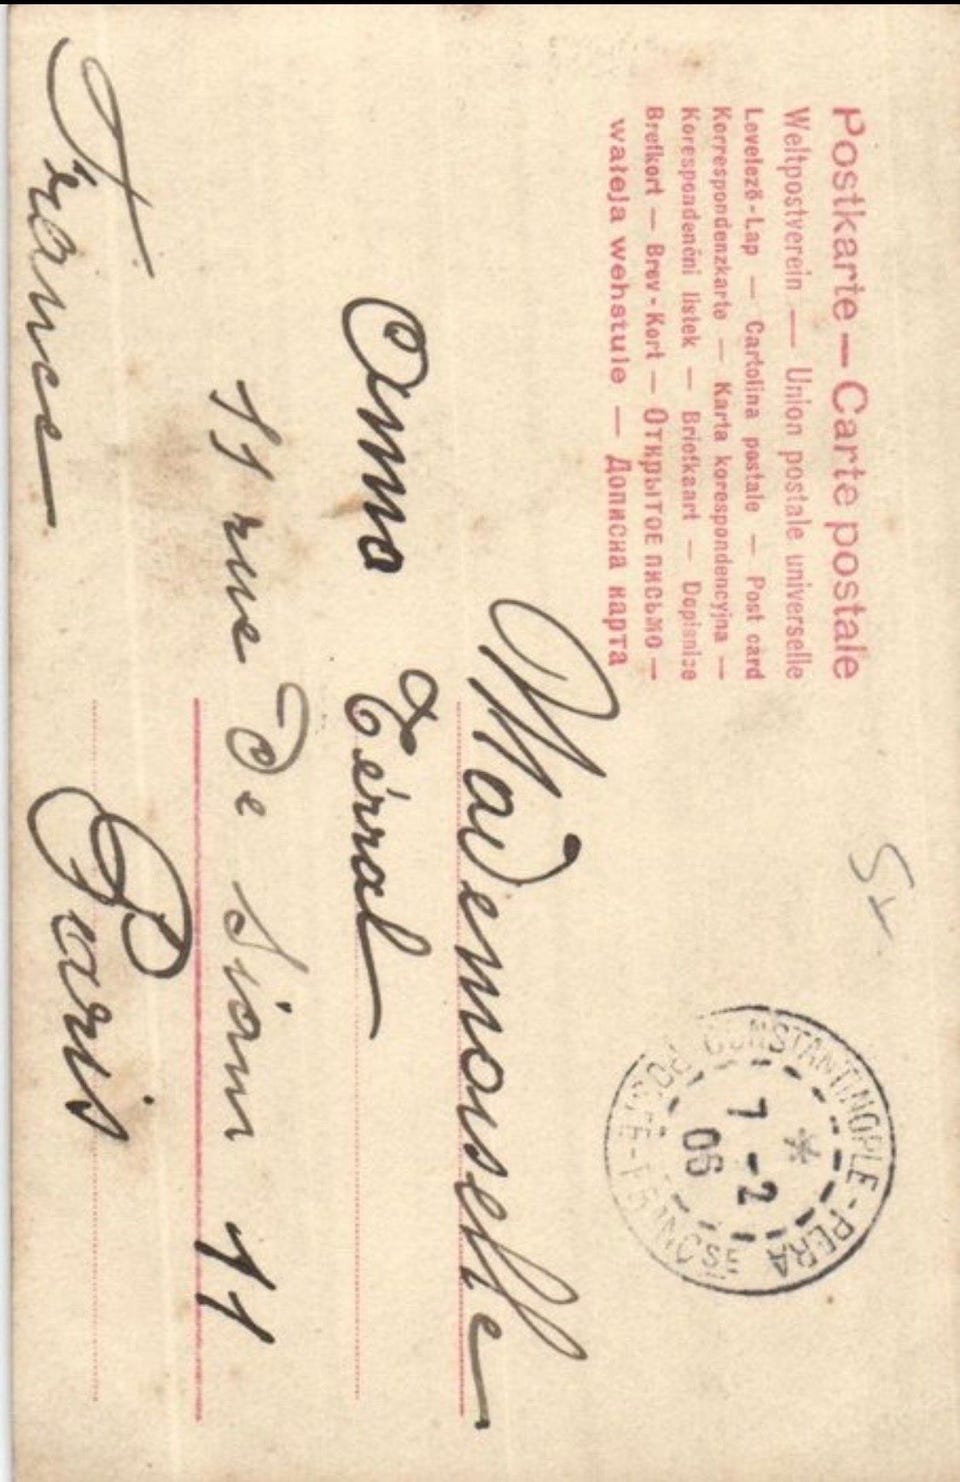 Postkarte — Carte postale
Weltpostverein — Union postale universelle
Levelező-Lap — Cartolina postale — Post card
Korrespondenzkarte — Karta korespondencyjna —
Korespondenční listek — Briefkaart — Dopisnice
Brefkort — Brev-Kort — Открытое письмо —
wateja wehstule — Дописна карта
CONSTANTINOPLE-PERA
*
7 -2
06
POSTE FRANÇSE
Mademoiselle
Anna Térral
11 rue de Siam 11
France Paris